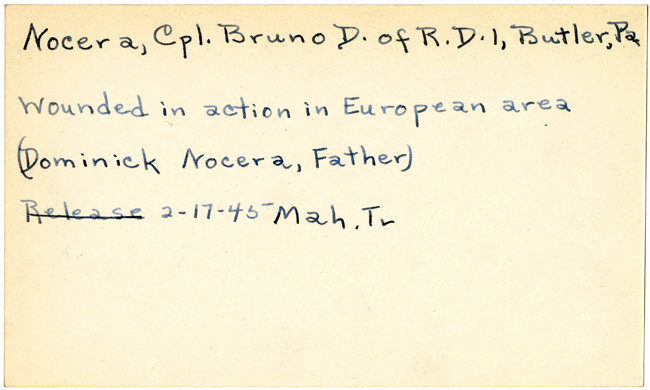 Nocera, Cpl. Bruno D. of R.D.1, Butler, Pa
Wounded in action in European area
(Dominick Nocera, Father)
Release 2-17-45 Mah. Tr